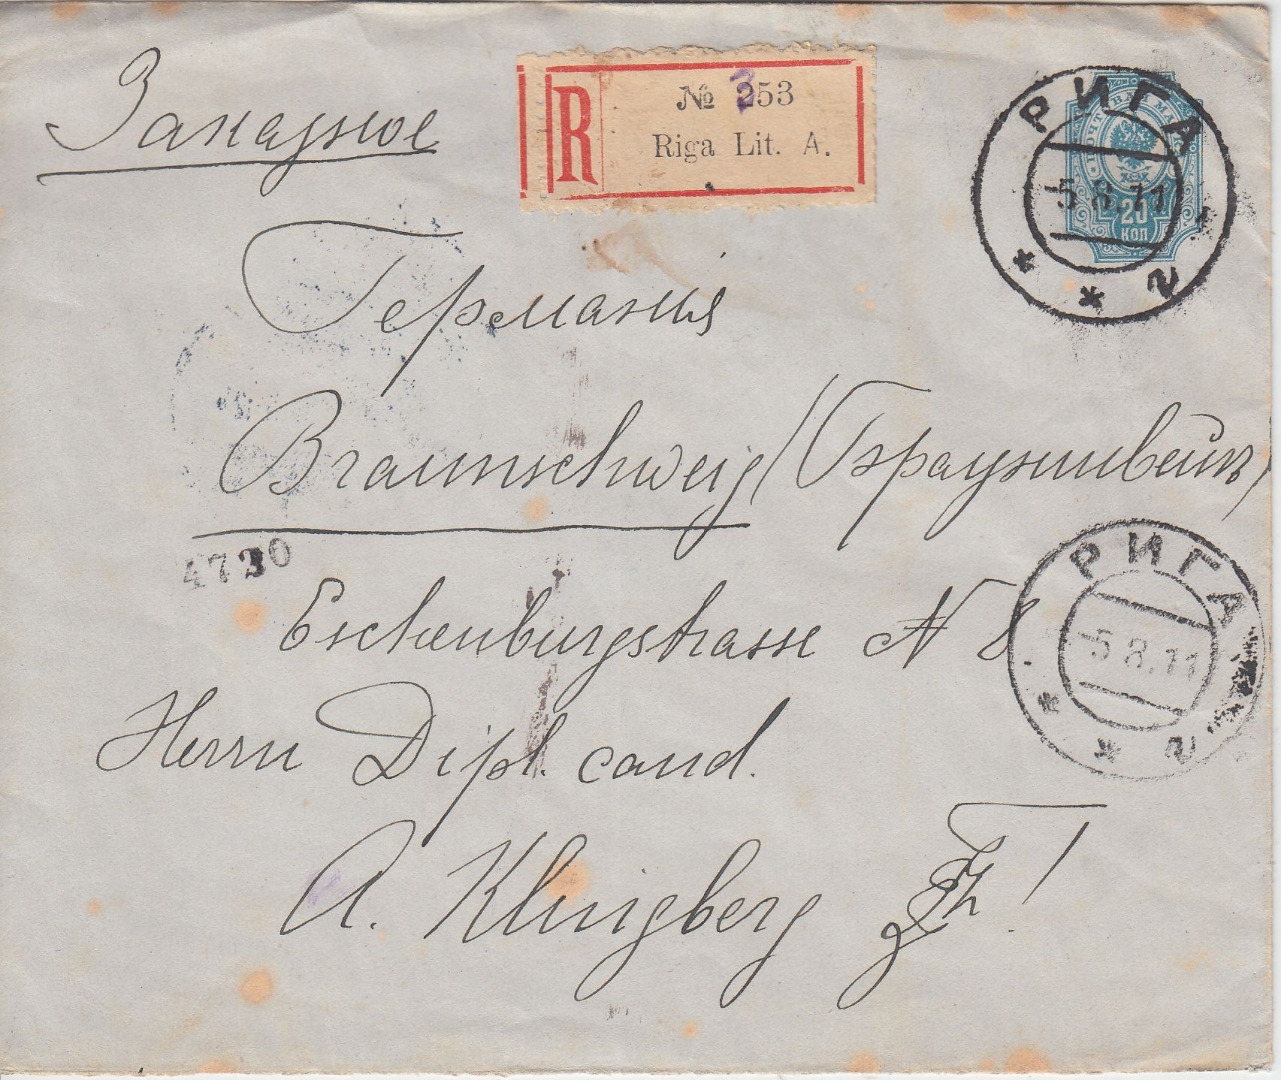 Заказное
R
№ 353
Riga Lit. A.
РИГА
5.8.11
20
КОП
2
Германия
Braunschweig (Брауншвейгъ)
4720
Eschenburgstrasse N 8
РИГА
5.8.11
2
Herrn Dipl. cand.
A. Klingberg